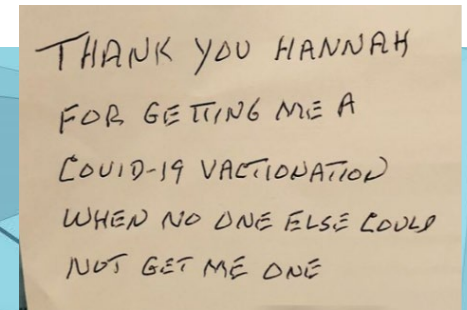 THANK YOU HANNAH
FOR GETTING ME A
COVID-19 VACTIONATION
WHEN NO ONE ELSE COULD
NOT GET ME ONE